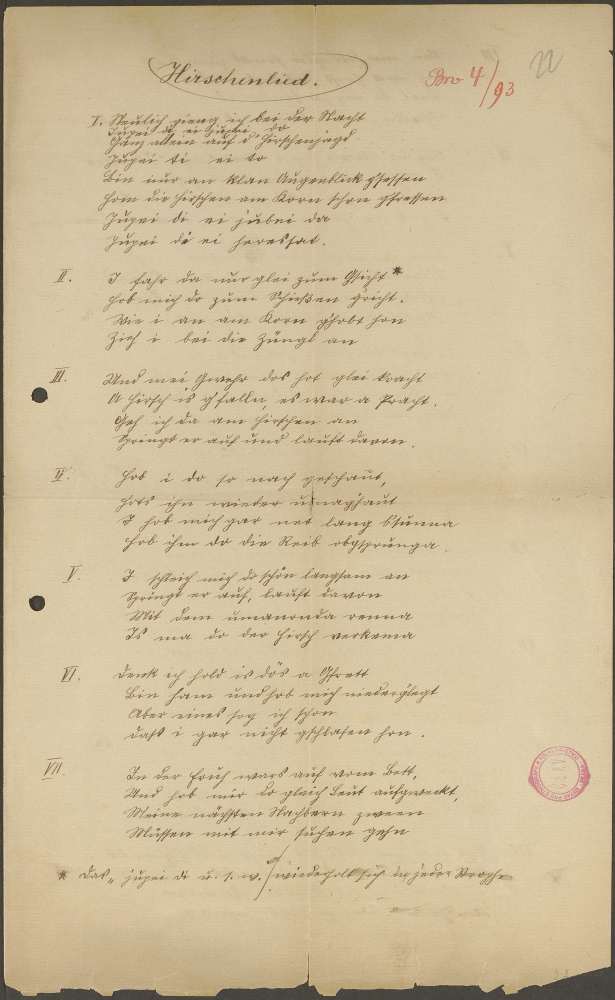 Hirschenlied.
Bro 4/93
I. Neulich gieng ich bei der Nacht
Jupei di ei jupei do
Ganz allein auf d' Hirschenjagd
Jupei di ei do
Bin nur an klan Augenblick gsessen
Hom die Hirschen am Korn schon gfressen
Jupei di ei jubei da
Jupei di ei
II. I fahr da nur glei zum Gsicht *
Hob mich do zum Schießen gricht.
Wie i an am Korn ghobt hon
Zieh i bei die Züngl an
III. Und mei Gwehr das hot glei kracht
A Hirsch is gfalln, es war a Pracht.
Geh ich da am Hirschen an
Springt er auf und lauft davon.
IV. Hob i do so noch geschaut,
Hots ihn wieder umaghaut
I hob mich gar net lang bsunna
Hob ihm do die Reib obgsprunga.
V. I schleich mich do schön langsam an
Springt er auf, lauft davon
Mit dem umananda renna
Is ma do der Hirsch verkema
VI. Denk ich hold is dös a Gfrett
Bin ham und hob mich niederglegt
Aber eines sog ich schon
Daß i gar nicht gschlafen hon.
VII. In der Früh wars auf vom Bett,
Und hob mir do gleich Leut aufgweckt,
Meine nächsten Nachbarn zween
Müssen mit mir suchen gehn
* Das "jupei di u. s. w." wiederholt sich in jeder Strophe